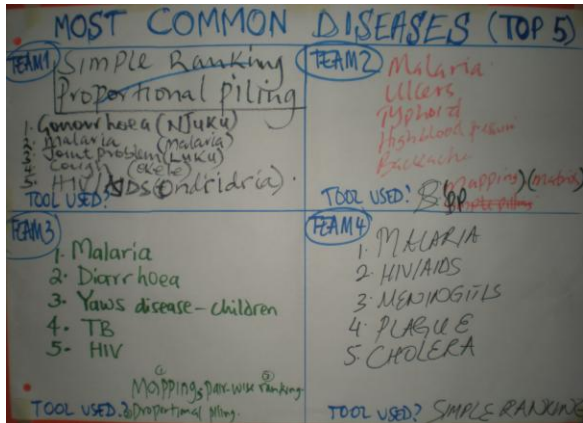 MOST COMMON DISEASES (TOP 5)
TEAM1
Simple Ranking
Proportional piling
1. Gonorrhoea (Njuku)
2. malaria (malaria)
3. Joint problem (Luku)
4. Cough
5. HIV
TOOL USED?
TEAM2
Malaria
Ulcers
Typhoid
High blood
Backache
TOOL USED? PP (mapping) (matrix)
TEAM3
1. Malaria
2. Diarrhoea
3. Yaws disease - children
4. TB
5. HIV
Mapping, Pair-wise ranking
TOOL USED? Proportional piling.
TEAM4
1. MALARIA
2. HIV/AIDS
3. MENINGITIS
4. PLAGUE
5. CHOLERA
TOOL USED? SIMPLE RANKING